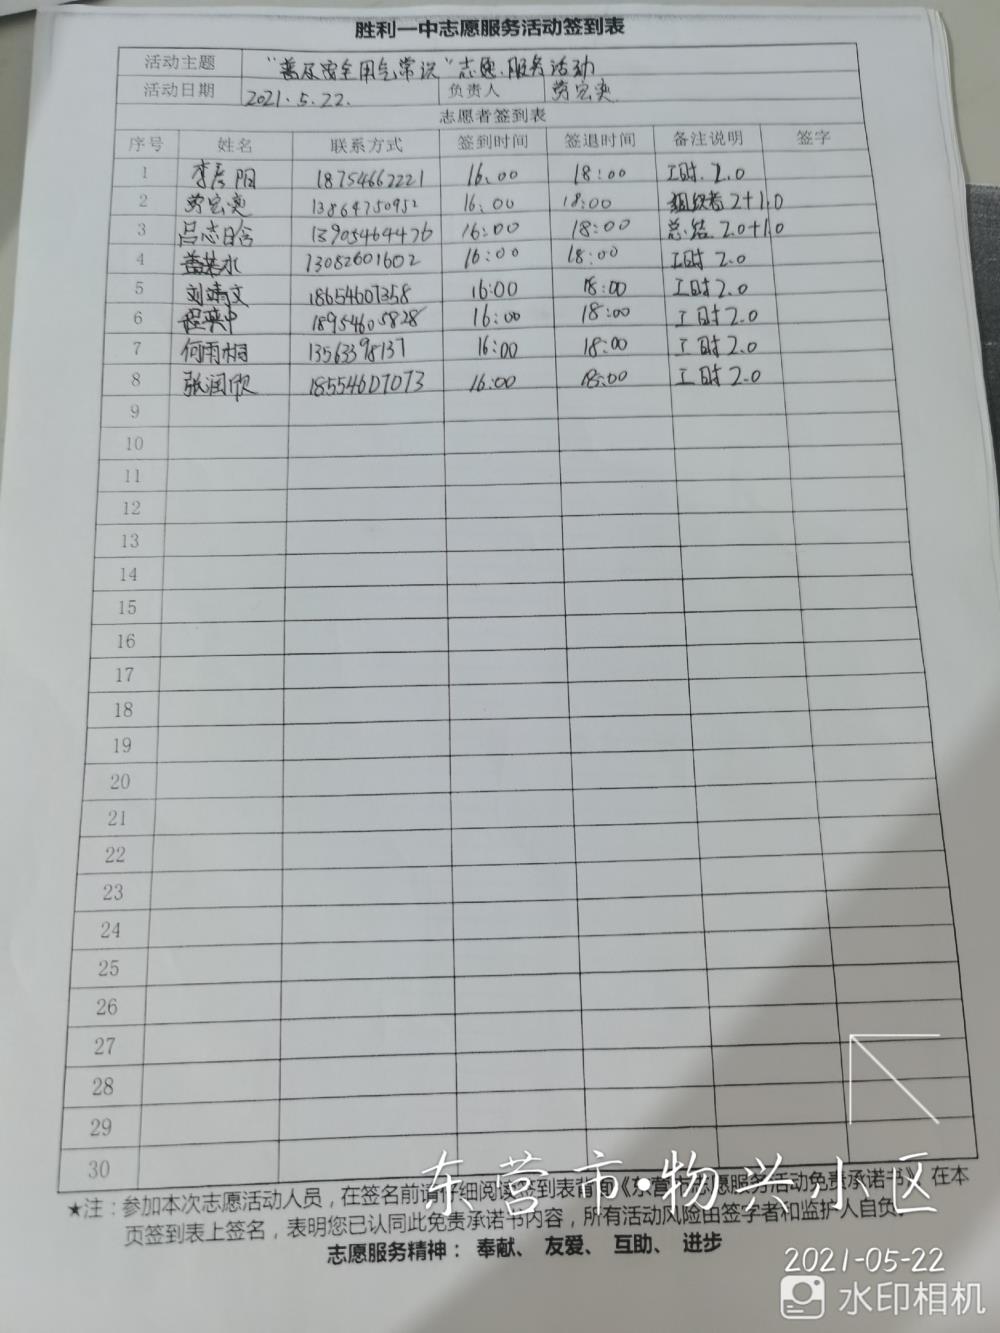 胜利一中志愿服务活动签到表
活动主题 "普及安全用气常识"志愿服务活动
活动日期 2021.5.22. 负责人 劳宏奕
志愿者签到表
序号 姓名 联系方式 签到时间 签退时间 备注说明 签字
1 李彦阳 18754662221 16:00 18:00 工时 2.0
2 劳宏奕 13864750952 16:00 18:00 组织者 2+1.0
3 吕志晗 13905464476 16:00 18:00 总结 2.0+1.0
4 盖若水 13082601602 16:00 18:00 工时 2.0
5 刘靖文 18654607358 16:00 18:00 工时2.0
6 程奕中 18954605828 16:00 18:00 工时2.0
7 何雨桐 1356398137 16:00 18:00 工时2.0
8 张润欣 18554607073 16:00 18:00 工时2.0
9
10
11
12
13
14
15
16
17
18
19
20
21
22
23
24
25
26
27
28
29
30
东营市·物兴小区
★注：参加本次志愿活动人员，在签名前请仔细阅读签到表背面《东营市志愿服务活动免责承诺书》，在本
页签到表上签名，表明您已认同此免责承诺书内容，所有活动风险由签字者和监护人自负。
志愿服务精神：奉献、友爱、互助、进步
2021-05-22
水印相机